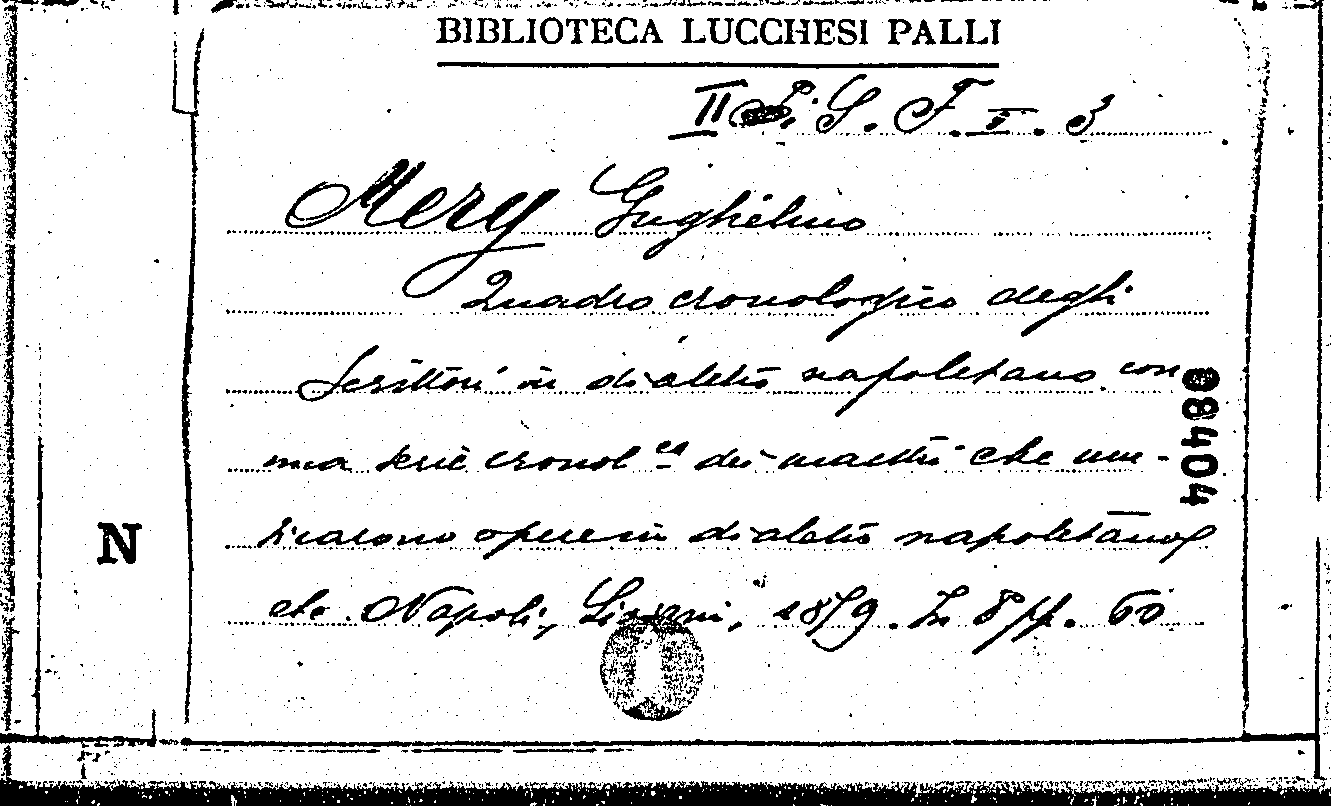 BIBLIOTECA LUCCHESI PALLI
II S. F. I. 3
Mery Guglielmo
Quadro cronologico degli
Scrittori in dialetto napoletano con
una serie cronol.ca dei maestri che mu-
sicarono opere in dialetto napoletano
etc. Napoli, 1879. In 8 pp. 60
88404
N